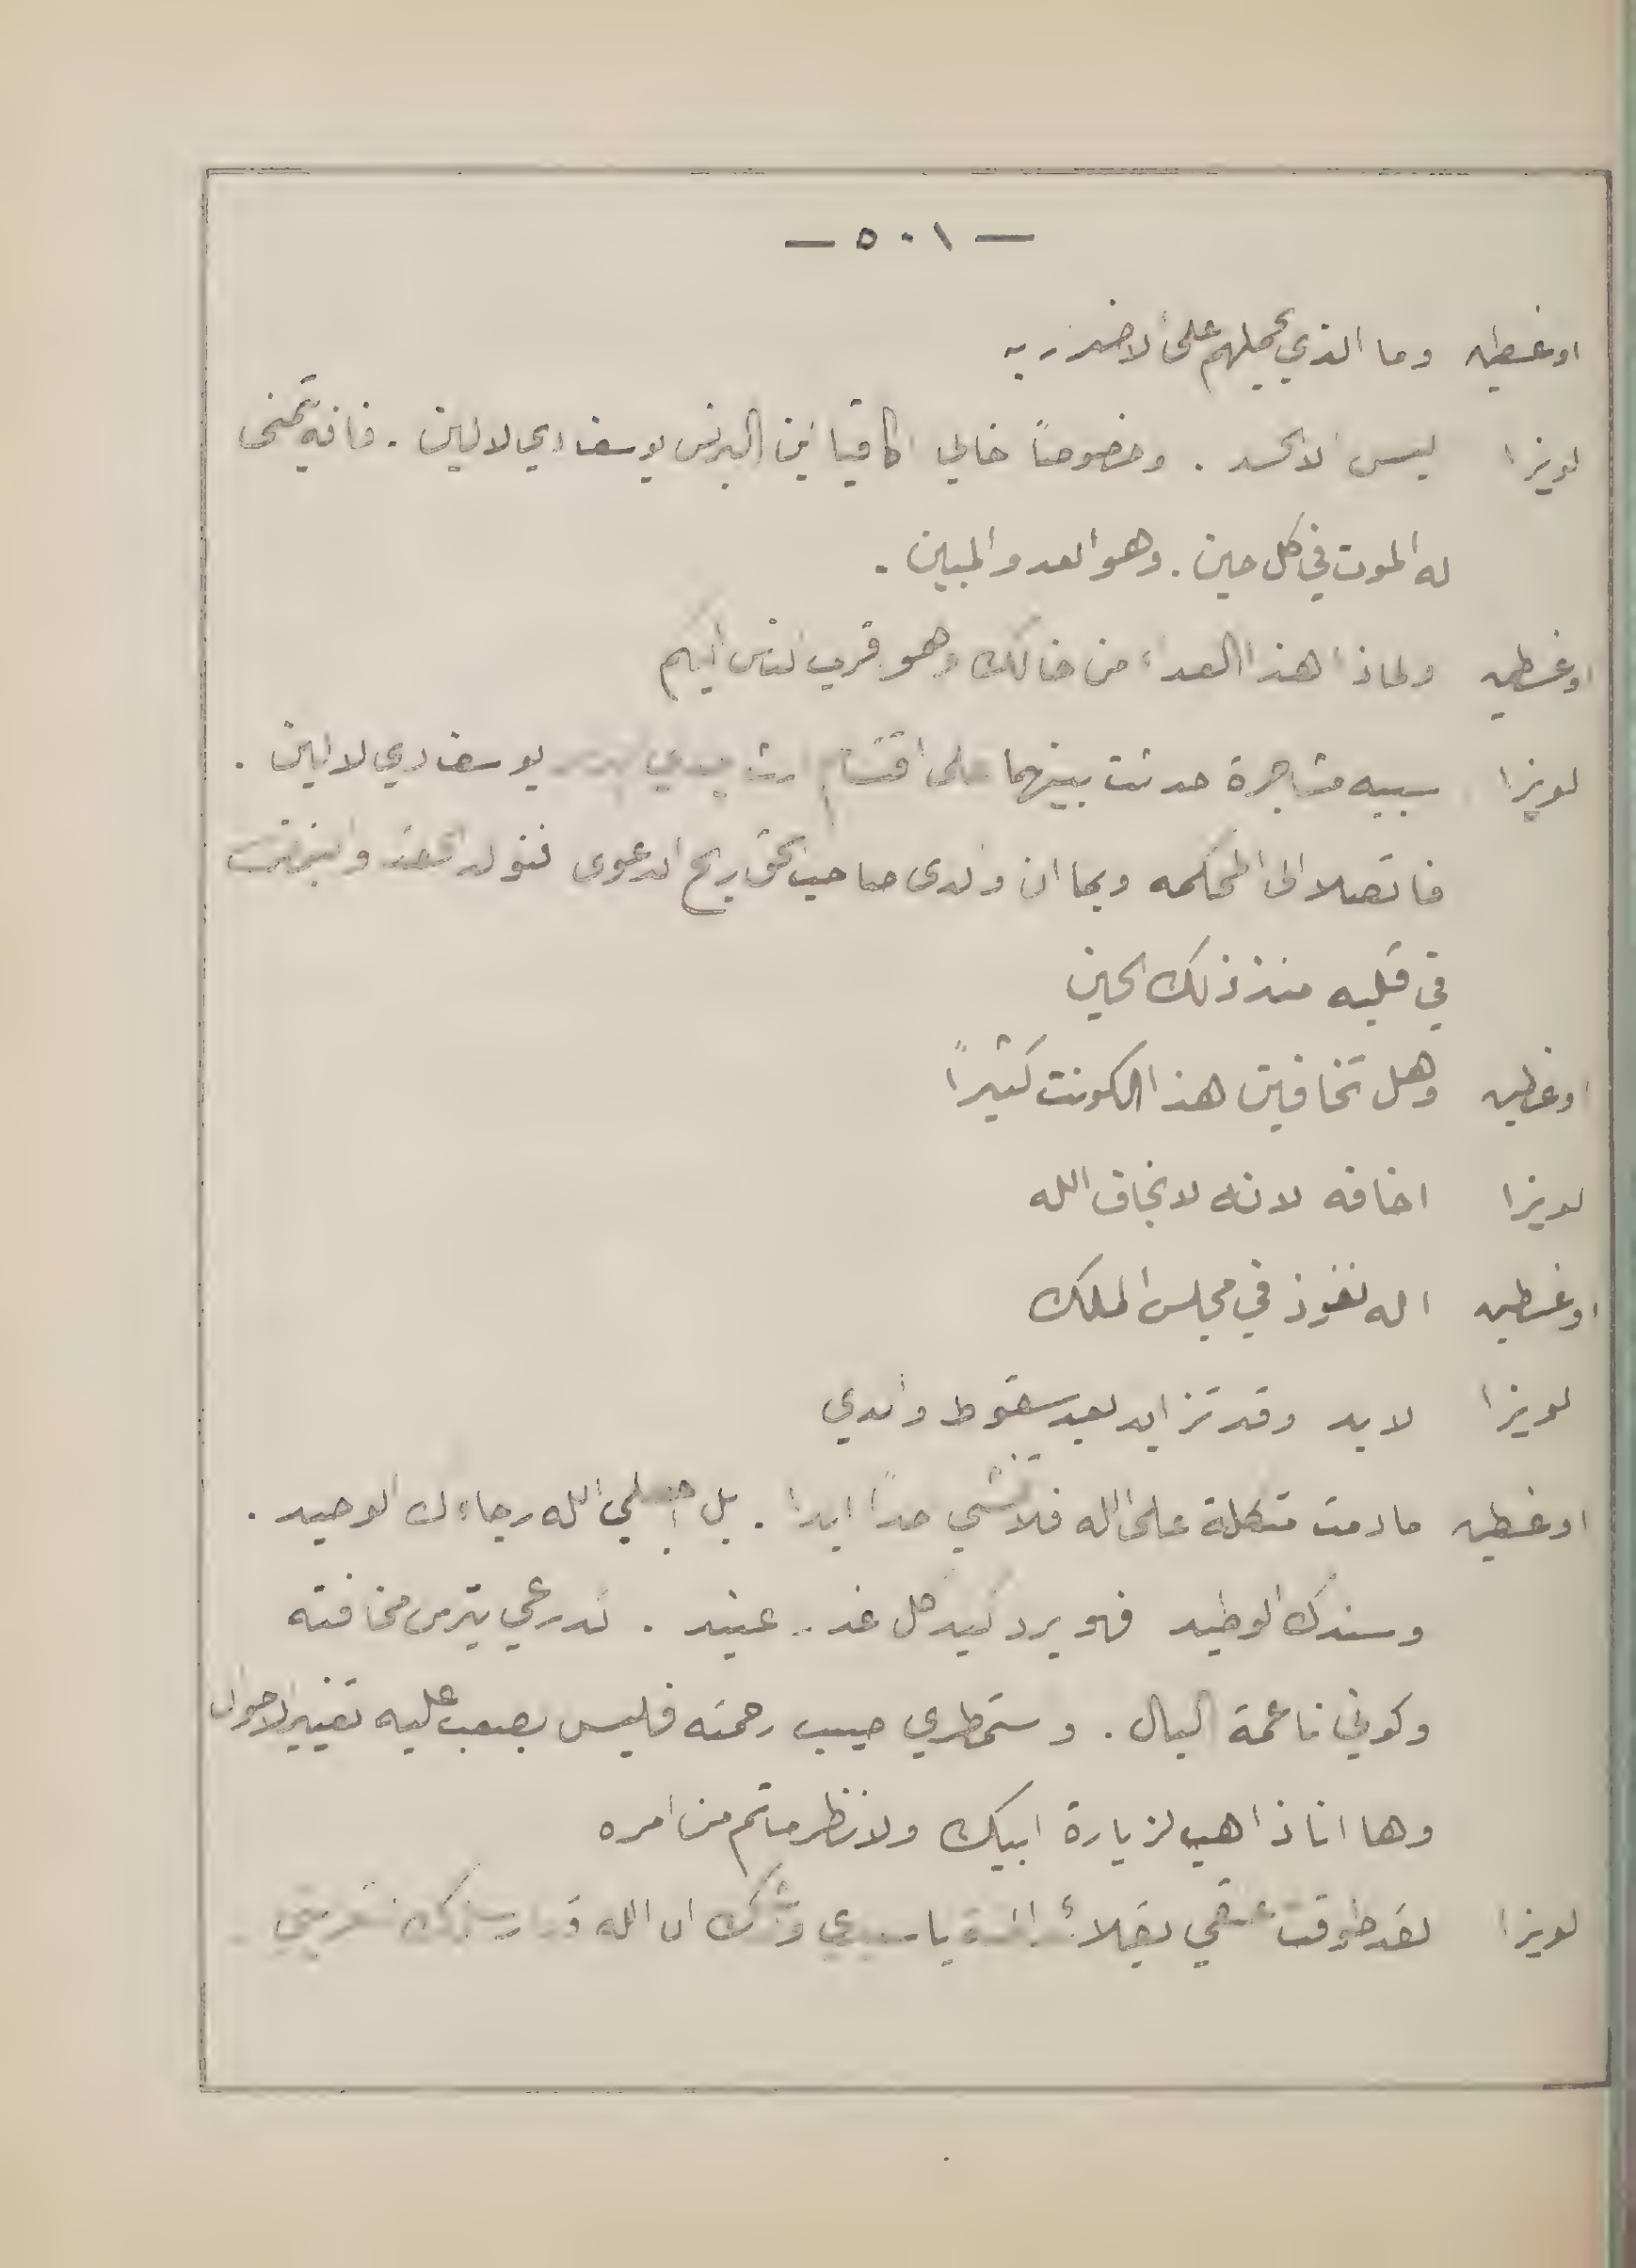 — ٥٠١ —
اوغسطين وما الذي يحملهم على الاضرار به
لويزا ليس الا الحسد . وخصوصاً خالي اكافيا ابن البرنس يوسف دي لالين . فانه يتمنى
له الموت في كل حين . وهو العدو المبين .
اوغسطين ولماذا هذا العداء من خالك وهو قريب الناس اليكم
لويزا سببه مشاجرة حدثت بينهما على اقتسام ارث يوسف دي لالين .
فاتصلا الى المحكمه وبما ان والدى صاحب الحق ربح الدعوى فتولد الحقد والبغض
في قلبه منذ ذلك الحين
اوغسطين وهل تخافين هذا الكونت كثيراً
لويزا اخافه لانه لا يخاف الله
اوغسطين اله نفوذ في مجلس الملك
لويزا لا بد وقد تزايد بعد سقوط والدي
اوغسطين ما دمت متكلة على الله فلا تخشي احداً ابدا . بل اجعلي الله رجاءك الوحيد .
وسندك الوطيد فهو يرد كيد كل غدار عنيد . تدرعي بترس مخافته
وكوني ناعمة البال . وستمطري صيب رحمته فليس بصعب عليه تغيير الاحوال
وها انا ذاهب لزيارة ابيك ولانظر ما تم من امره
لويزا لقد طوقت عنقي بقلائد يا سيدي ان الله قد ارسلك